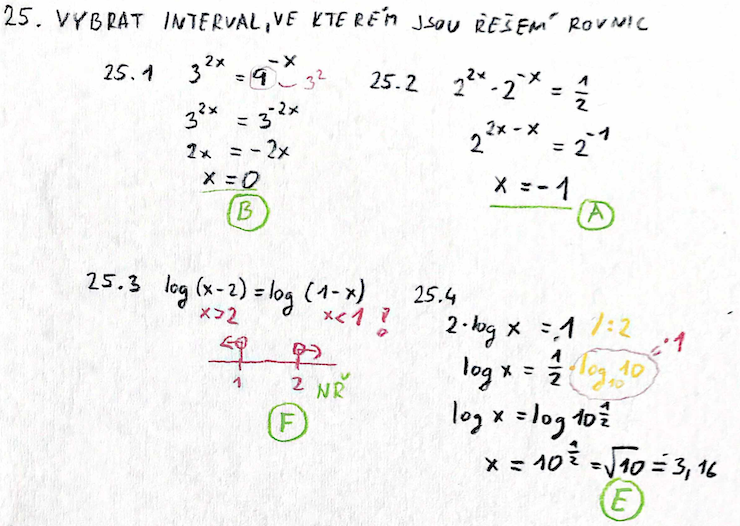 25. VYBRAT INTERVAL, VE KTERÉM JSOU ŘEŠENÍ ROVNIC
25.1 3^2x = 9^-x 3^2
3^2x = 3^-2x
2x = -2x
x = 0
B
25.2 2^2x · 2^-x = 1/2
2^2x-x = 2^-1
x = -1
A
25.3 log (x-2) = log (1-x)
x>2 x<1 !
1 2 NŘ
F
25.4
2·log x = 1 /:2
log x = 1/2 · log₁₀ 10 = 1
log x = log 10^1/2
x = 10^1/2 = √10 ≐ 3,16
E